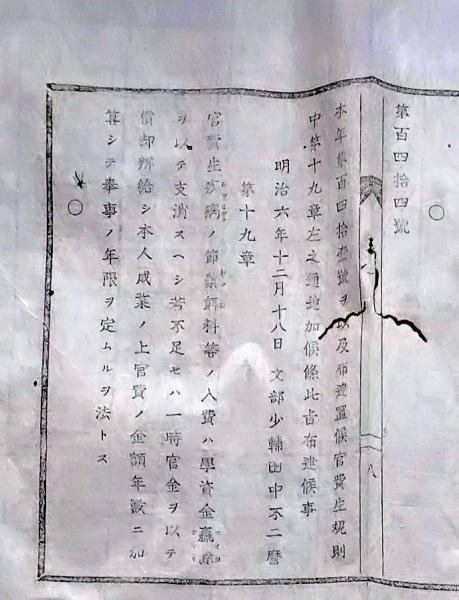 第百四拾四號
本年第百四拾壹號ヲ以及布達置候官費生規則
中第十九章左之通追加候條此旨布達候事
明治六年十二月十八日 文部少輔田中不二麿
第十九章
官費生疾病ノ節藥餌料等ノ入費ハ學資金贏餘
ヲ以テ支消スヘシ若不足セハ一時官金ヲ以テ
償却辨給シ本人成業ノ上官費ノ金額年數ニ加
算シテ奉事ノ年限ヲ定ムルヲ法トス
八